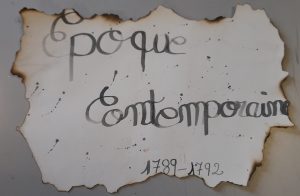 Epoque
Contemporaine
1789-1792